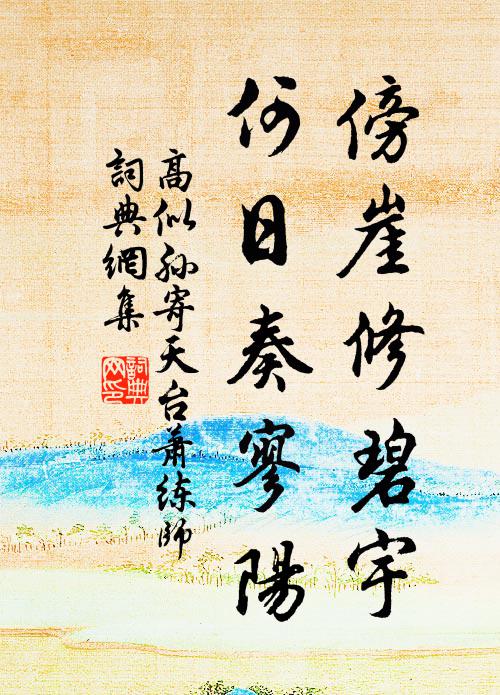 傍崖修碧宇
何日奏寥陽
高似孙寄天台萧练師
詞典網集
詞典網印